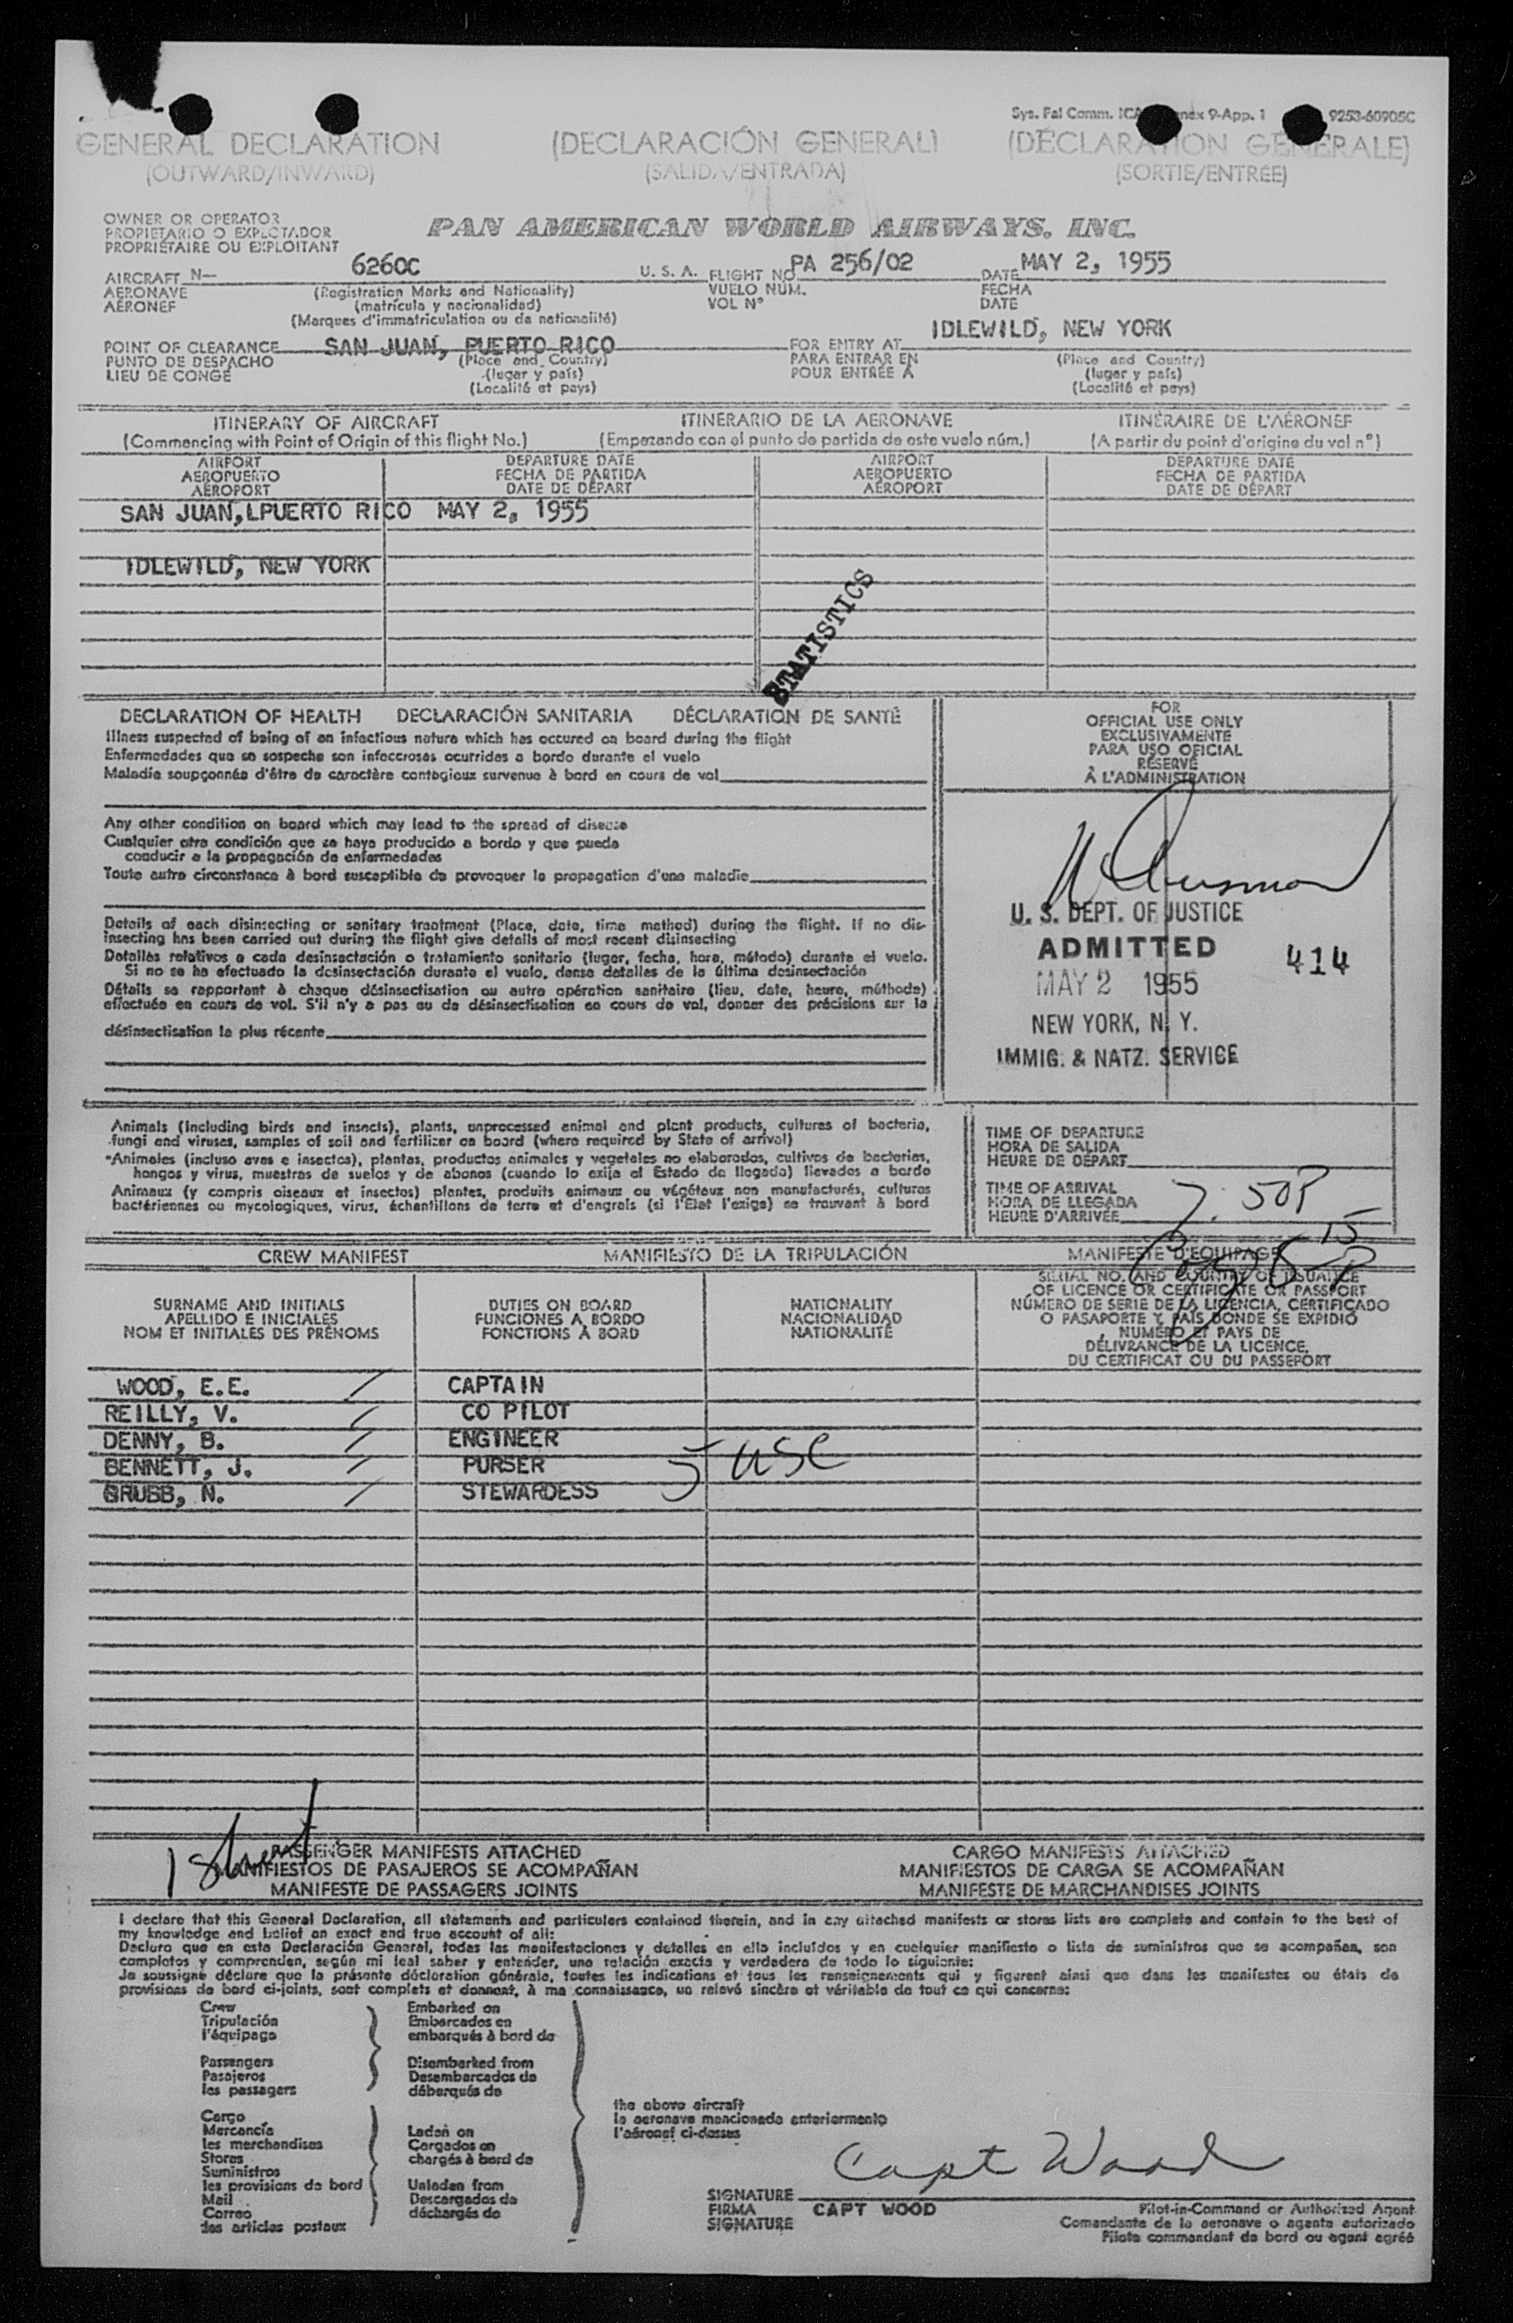 Sys. Fal Comm. ICA nex 9-App. 1 9253-60905C
GENERAL DECLARATION (DECLARACIÓN GENERAL) (DÉCLARATION GÉNÉRALE)
(OUTWARD/INWARD) (SALIDA/ENTRADA) (SORTIE/ENTRÉE)
OWNER OR OPERATOR
PROPIETARIO O EXPLOTADOR
PROPRIÉTAIRE OU EXPLOITANT
PAN AMERICAN WORLD AIRWAYS, INC.
AIRCRAFT N— 6260C U. S. A. FLIGHT NO. PA 256/02 DATE MAY 2, 1955
AERONAVE (Registration Marks and Nationality) VUELO NÚM. FECHA
AÉRONEF (matrícula y nacionalidad) VOL N° DATE
(Marques d'immatriculation ou de nationalité)
IDLEWILD, NEW YORK
POINT OF CLEARANCE SAN JUAN, PUERTO RICO FOR ENTRY AT
PUNTO DE DESPACHO (Place and Country) PARA ENTRAR EN (Place and Country)
LIEU DE CONGÉ (lugar y país) POUR ENTRÉE À (lugar y país)
(Localité et pays) (Localité et pays)
ITINERARY OF AIRCRAFT ITINERARIO DE LA AERONAVE ITINÉRAIRE DE L'AÉRONEF
(Commencing with Point of Origin of this flight No.) (Empezando con el punto de partida de este vuelo núm.) (A partir du point d'origine du vol n°)
AIRPORT DEPARTURE DATE AIRPORT DEPARTURE DATE
AEROPUERTO FECHA DE PARTIDA AEROPUERTO FECHA DE PARTIDA
AÉROPORT DATE DE DÉPART AÉROPORT DATE DE DÉPART
SAN JUAN,LPUERTO RICO MAY 2, 1955
IDLEWILD, NEW YORK
STATISTICS
DECLARATION OF HEALTH DECLARACIÓN SANITARIA DÉCLARATION DE SANTÉ
Illness suspected of being of an infectious nature which has occured on board during the flight
Enfermedades que se sospeche son infecciosas ocurridas a bordo durante el vuelo
Maladie soupçonnée d'être de caractère contagieux survenue à bord en cours de vol
Any other condition on board which may lead to the spread of disease
Cualquier otra condición que se haya producido a bordo y que pueda
conducir a la propagación de enfermedades
Toute autre circonstance à bord susceptible de provoquer la propagation d'une maladie
Details of each disinsecting or sanitary treatment (Place, date, time method) during the flight. If no dis-
insecting has been carried out during the flight give details of most recent disinsecting
Detalles relativos a cada desinsectación o tratamiento sanitario (lugar, fecha, hora, método) durante el vuelo.
Si no se ha efectuado la desinsectación durante el vuelo, dense detalles de la última desinsectación
Détails se rapportant à chaque désinsectisation ou autre opération sanitaire (lieu, date, heure, méthode)
effectuée en cours de vol. S'il n'y a pas eu de désinsectisation en cours de vol, donner des précisions sur la
désinsectisation la plus récente
FOR
OFFICIAL USE ONLY
EXCLUSIVAMENTE
PARA USO OFICIAL
RÉSERVÉ
À L'ADMINISTRATION
U. S. DEPT. OF JUSTICE
ADMITTED
414
MAY 2 1955
NEW YORK, N. Y.
IMMIG. & NATZ. SERVICE
Animals (including birds and insects), plants, unprocessed animal and plant products, cultures of bacteria,
fungi and viruses, samples of soil and fertilizer on board (where required by State of arrival)
Animales (incluso aves e insectos), plantas, productos animales y vegetales no elaborados, cultivos de bacterias,
hongos y virus, muestras de suelos y de abonos (cuando lo exija el Estado de llegada) llevados a bordo
Animaux (y compris oiseaux et insectes) plantes, produits animaux ou végétaux non manufacturés, cultures
bactériennes ou mycologiques, virus, échantillons de terre et d'engrais (si l'État l'exige) se trouvant à bord
TIME OF DEPARTURE
HORA DE SALIDA
HEURE DE DÉPART
TIME OF ARRIVAL
HORA DE LLEGADA
HEURE D'ARRIVÉE 7:50P
15
CREW MANIFEST MANIFIESTO DE LA TRIPULACIÓN MANIFESTE D'ÉQUIPAGE
SURNAME AND INITIALS
APELLIDO E INICIALES
NOM ET INITIALES DES PRÉNOMS
DUTIES ON BOARD
FUNCIONES A BORDO
FONCTIONS À BORD
NATIONALITY
NACIONALIDAD
NATIONALITÉ
SERIAL NO. AND COUNTRY OF ISSUANCE
OF LICENCE OR CERTIFICATE OR PASSPORT
NÚMERO DE SERIE DE LA LICENCIA, CERTIFICADO
O PASAPORTE Y PAÍS DONDE SE EXPIDIÓ
NUMÉRO ET PAYS DE
DÉLIVRANCE DE LA LICENCE,
DU CERTIFICAT OU DU PASSEPORT
WOOD, E.E. / CAPTAIN
REILLY, V. / CO PILOT
DENNY, B. / ENGINEER
BENNETT, J. / PURSER 5 USC
GRUBB, N. / STEWARDESS
1 sheet
PASSENGER MANIFESTS ATTACHED CARGO MANIFESTS ATTACHED
MANIFIESTOS DE PASAJEROS SE ACOMPAÑAN MANIFIESTOS DE CARGA SE ACOMPAÑAN
MANIFESTE DE PASSAGERS JOINTS MANIFESTE DE MARCHANDISES JOINTS
I declare that this General Declaration, all statements and particulars contained therein, and in any attached manifests or stores lists are complete and contain to the best of
my knowledge and belief an exact and true account of all:
Declaro que en esta Declaración General, todas las manifestaciones y detalles en ella incluídos y en cuelquier manifiesto o lista de suministros que se acompañan, son
completos y comprenden, según mi leal saber y entender, una relación exacta y verdadera de todo lo siguiente:
Je soussigné déclare que la présente déclaration générale, toutes les indications et tous les renseignements qui y figurent ainsi que dans les manifestes ou états de
provisions de bord ci-joints, sont complets et donnent, à ma connaissance, un relevé sincère et véritable de tout ce qui concerne:
Crew Embarked on
Tripulación Embarcados en
l'équipage embarqués à bord de
Passengers Disembarked from
Pasajeros Desembarcados de
les passagers débarqués de
the above aircraft
la aeronave mencionada anteriormente
l'aéronef ci-dessus
Cargo
Mercancía Laden on
les marchandises Cargados en
Stores chargés à bord de
Suministros
les provisions de bord Unladen from
Mail Descargados de
Correo déchargés de
des articles postaux
Capt Wood
SIGNATURE
FIRMA CAPT WOOD Pilot-in-Command or Authorized Agent
SIGNATURE Comandante de la aeronave o agente autorizado
Pilote commandant de bord ou agent agréé